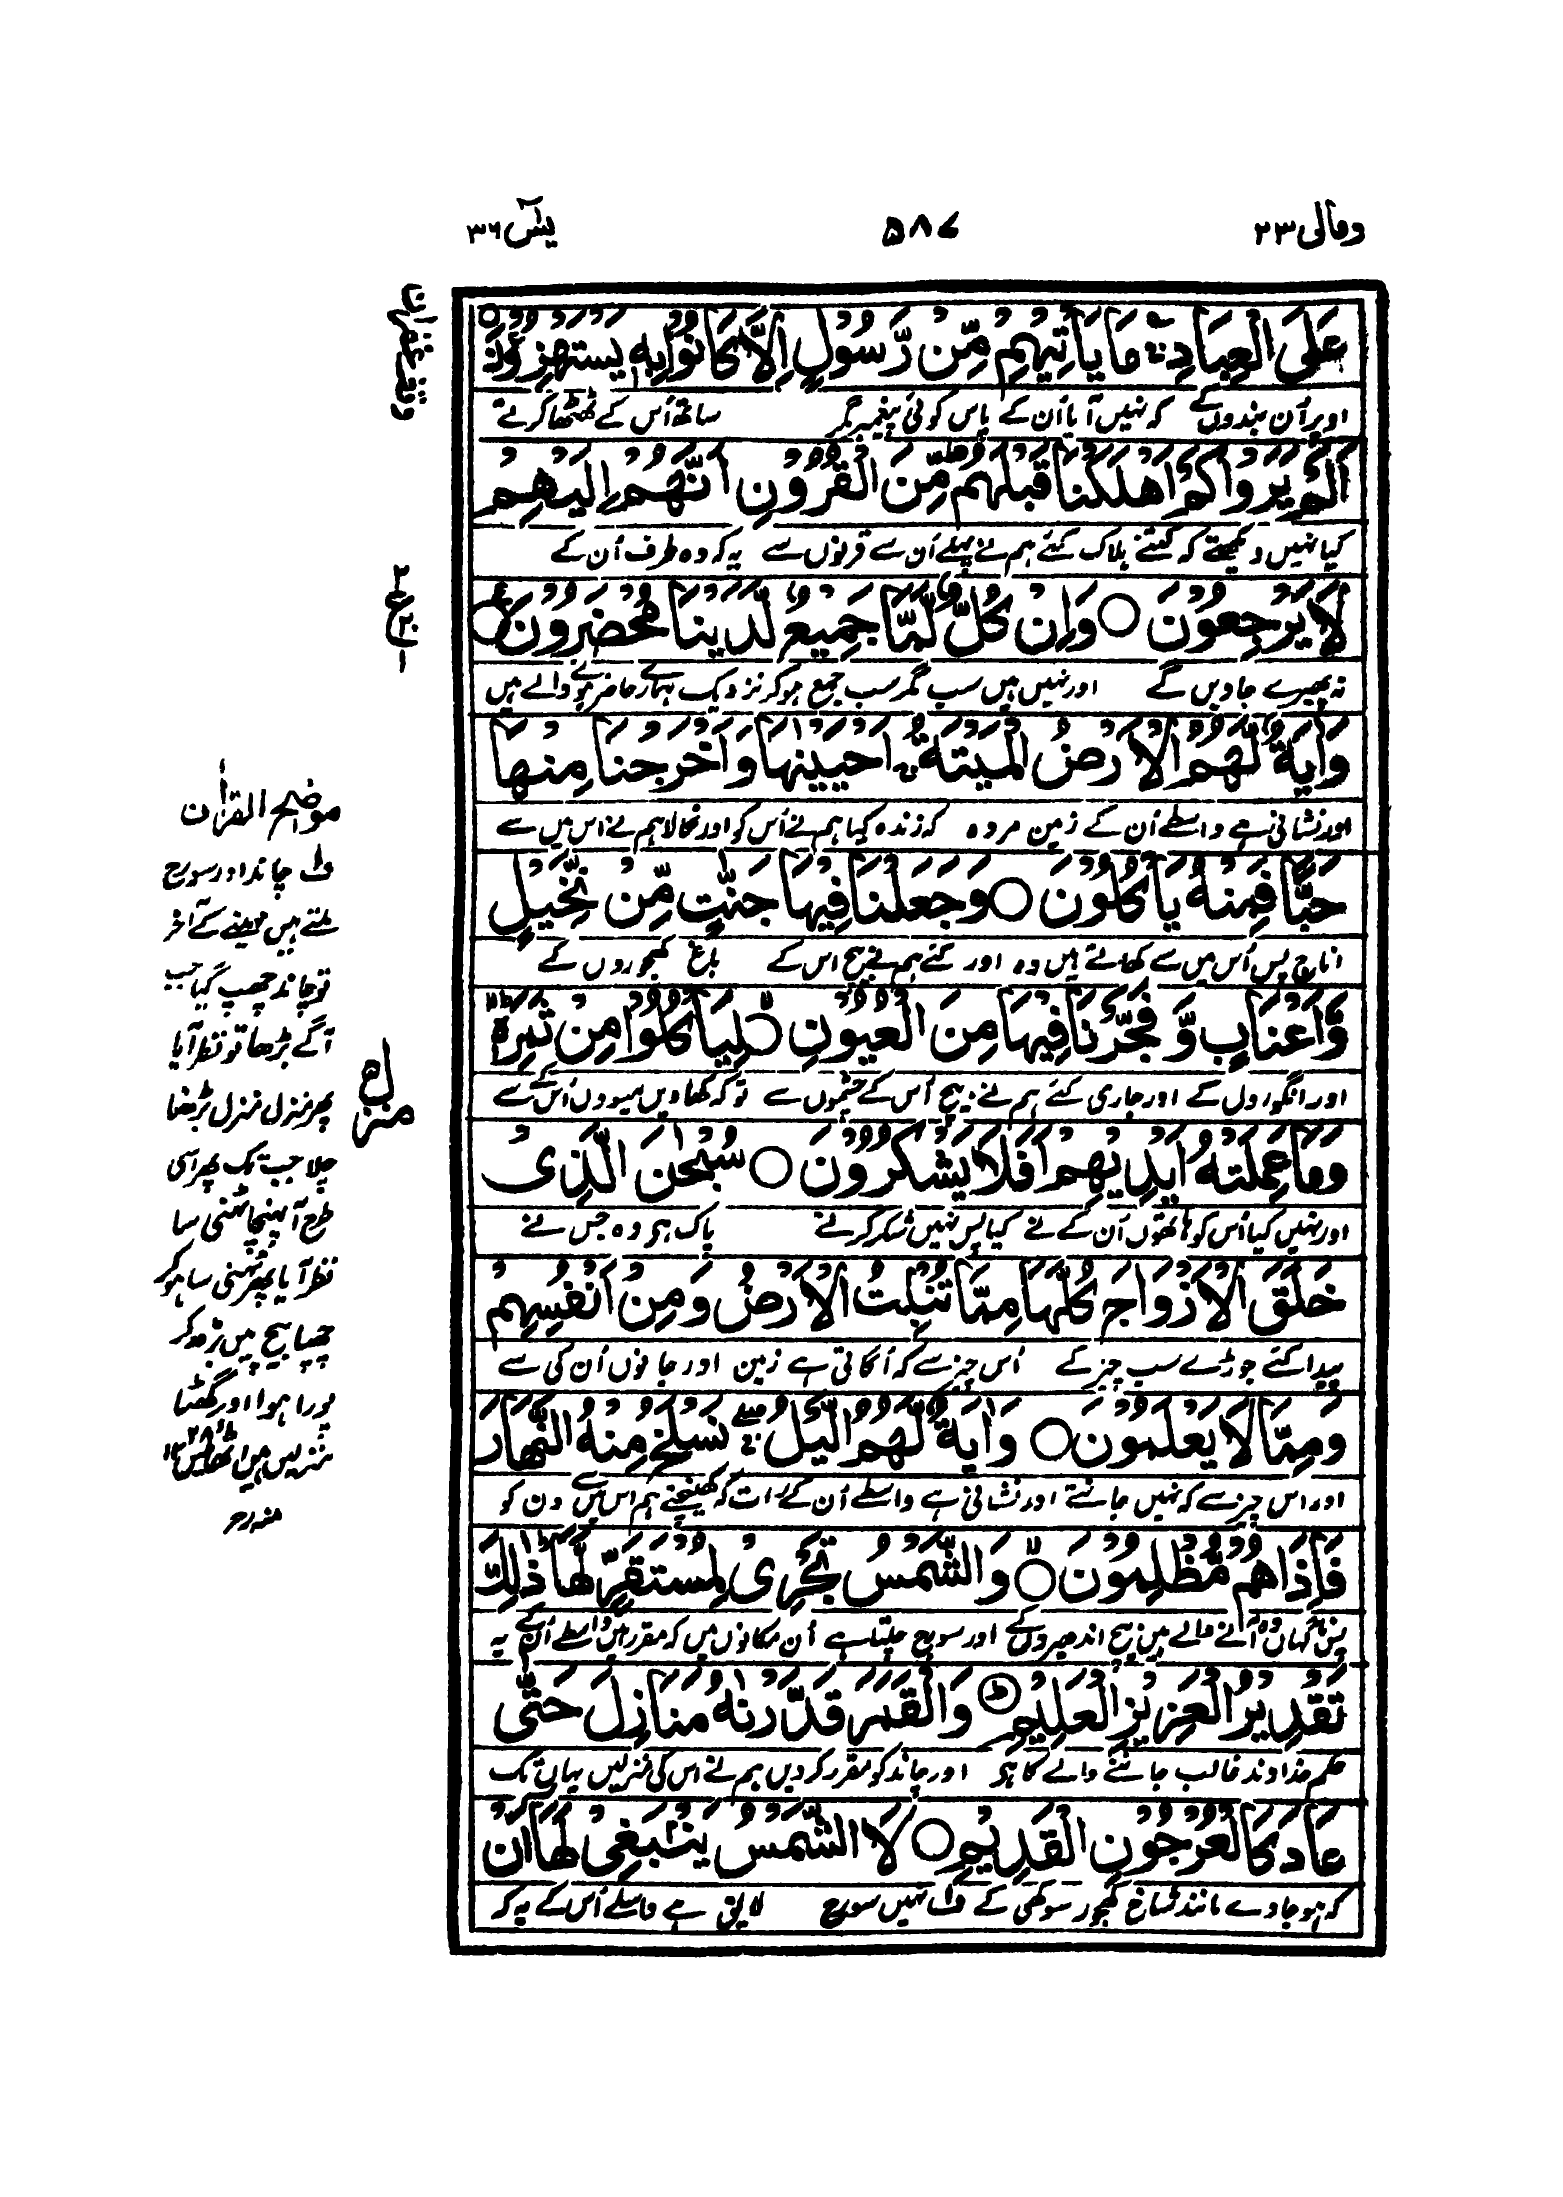 ومالی ۲۳
۵۸۷
یٰسٓ ۳۶
عَلَى الْعِبَادِ ۚ مَا يَاْتِيْهِمْ مِّنْ رَّسُوْلٍ اِلَّا كَانُوْا بِهٖ يَسْتَهْزِءُوْنَ ○
اوپر اُن بندوں کے کہ نہیں آیا اُن کے پاس کوئی پیغمبر مگر ساتھ اُس کے ٹھٹھا کرتے
اَلَمْ يَرَوْا كَمْ اَهْلَكْنَا قَبْلَهُمْ مِّنَ الْقُرُوْنِ اَنَّهُمْ اِلَيْهِمْ
کیا نہیں دیکھتے کہ کتنے ہلاک کئے ہم نے پہلے اُن سے قرنوں سے یہ کہ وہ طرف اُن کے
لَا يَرْجِعُوْنَ ○ وَاِنْ كُلٌّ لَّمَّا جَمِيْعٌ لَّدَيْنَا مُحْضَرُوْنَ ○
نہ پھیرے جاویں گے اور نہیں ہیں سب مگر سب جمع ہو کر نزدیک ہمارے حاضر ہونے والے ہیں
وَاٰيَةٌ لَّهُمُ الْاَرْضُ الْمَيْتَةُ ۖ اَحْيَيْنٰهَا وَاَخْرَجْنَا مِنْهَا
اور نشانی ہے واسطے اُن کے زمین مردہ کہ زندہ کیا ہم نے اُس کو اور نکالا ہم نے اس میں سے
حَبًّا فَمِنْهُ يَاْكُلُوْنَ ○ وَجَعَلْنَا فِيْهَا جَنّٰتٍ مِّنْ نَّخِيْلٍ
اناج پس اُس میں سے کھاتے ہیں وہ اور کئے ہم نے بیچ اس کے باغ کھجوروں کے
وَّاَعْنَابٍ وَّفَجَّرْنَا فِيْهَا مِنَ الْعُيُوْنِ ○ لِيَاْكُلُوْا مِنْ ثَمَرِهٖ
اور انگوروں کے اور جاری کئے ہم نے بیچ اُس کے چشموں سے تو کہ کھاویں میووں اُس کے سے
وَمَا عَمِلَتْهُ اَيْدِيْهِمْ اَفَلَا يَشْكُرُوْنَ ○ سُبْحٰنَ الَّذِىْ
اور نہیں کیا اُس کو ہاتھوں اُن کے نے کیا پس نہیں شکر کرتے پاک ہے وہ جس نے
خَلَقَ الْاَزْوَاجَ كُلَّهَا مِمَّا تُنْبِتُ الْاَرْضُ وَمِنْ اَنْفُسِهِمْ
پیدا کئے جوڑے سب چیز کے اُس چیز سے کہ اُگاتی ہے زمین اور جانوں اُن کی سے
وَمِمَّا لَا يَعْلَمُوْنَ ○ وَاٰيَةٌ لَّهُمُ الَّيْلُ ۖ نَسْلَخُ مِنْهُ النَّهَارَ
اور اس چیز سے کہ نہیں جانتے اور نشانی ہے واسطے اُن کے رات کہ کھینچتے ہم اس میں سے دن کو
فَاِذَا هُمْ مُّظْلِمُوْنَ ○ وَالشَّمْسُ تَجْرِىْ لِمُسْتَقَرٍّ لَّهَا ذٰلِكَ
پس ناگہاں وہ آنے والے ہیں بیچ اندھیروں کے اور سورج چلتا ہے اُن مکانوں میں کہ مقرر ہیں واسطے اُس کے یہ
تَقْدِيْرُ الْعَزِيْزِ الْعَلِيْمِ ○ وَالْقَمَرَ قَدَّرْنٰهُ مَنَازِلَ حَتّٰى
حکم خداوند غالب جاننے والے کا ہے اور چاند کو مقرر کر دیں ہم نے اس کی منزلیں یہاں تک
عَادَ كَالْعُرْجُوْنِ الْقَدِيْمِ ○ لَا الشَّمْسُ يَنْۢبَغِىْ لَهَآ اَنْ
کہ ہو جاوے مانند شاخ کھجور سوکھی کے ف۱ نہیں سورج لایق ہے واسطے اُس کے یہ کہ
وقف غفران
ع
منزل
موضح القراٰن
ف۱ چاند اور سورج
ملتے ہیں مہینے کے آخر
تو چاند چھپ گیا جب
آگے بڑھا تو نظر آیا
پھر منزل منزل بڑھتا
چلا جب تک پھر اسی
طرح آ پہنچا ٹہنی سا
نظر آیا پھر ٹہنی سا ہو کر
چھپا بیچ میں بڑھ کر
پورا ہوا اور گھٹا
منزلیں ہیں اٹھائیس ۲۸ ۱۲
منہ رحمہ